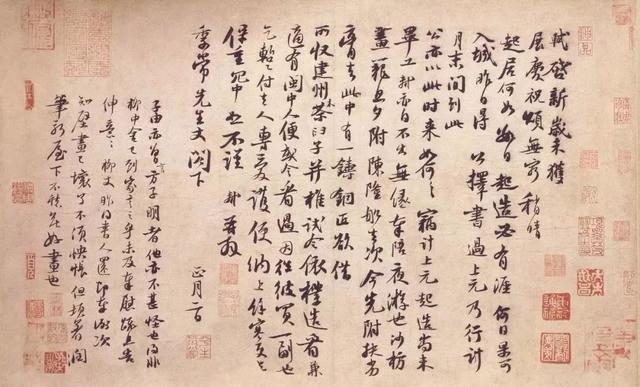 軾啓新歲未獲
展慶祝頌無窮稍晴
起居何如數日起造必有涯何日果可
入城昨日得公擇書過上元乃行計
月末間到此
公亦以此時來如何竊計上元起造尚未
畢工軾亦自不出無緣奉陪夜游也沙枋
畫籠旦夕附陳隆船去次今先附扶劣
膏去此中有一鑄銅匠欲借
所收建州木茶臼子并椎試令依樣造看兼
適有閩中人便或令看過因往彼買一副也
乞暫付去人專愛護便納上餘寒更乞
保重冗中恕不謹軾再拜
季常先生丈閣下
正月二日
子由亦曾言方子明者他亦不甚怪也得非
柳中舍已到家言之乎未及奉慰疏且告
伸意伸意柳丈昨得書人還即奉謝次
知壁畫已壞了不須怏悵但頓著潤
筆新屋下不愁無好畫也